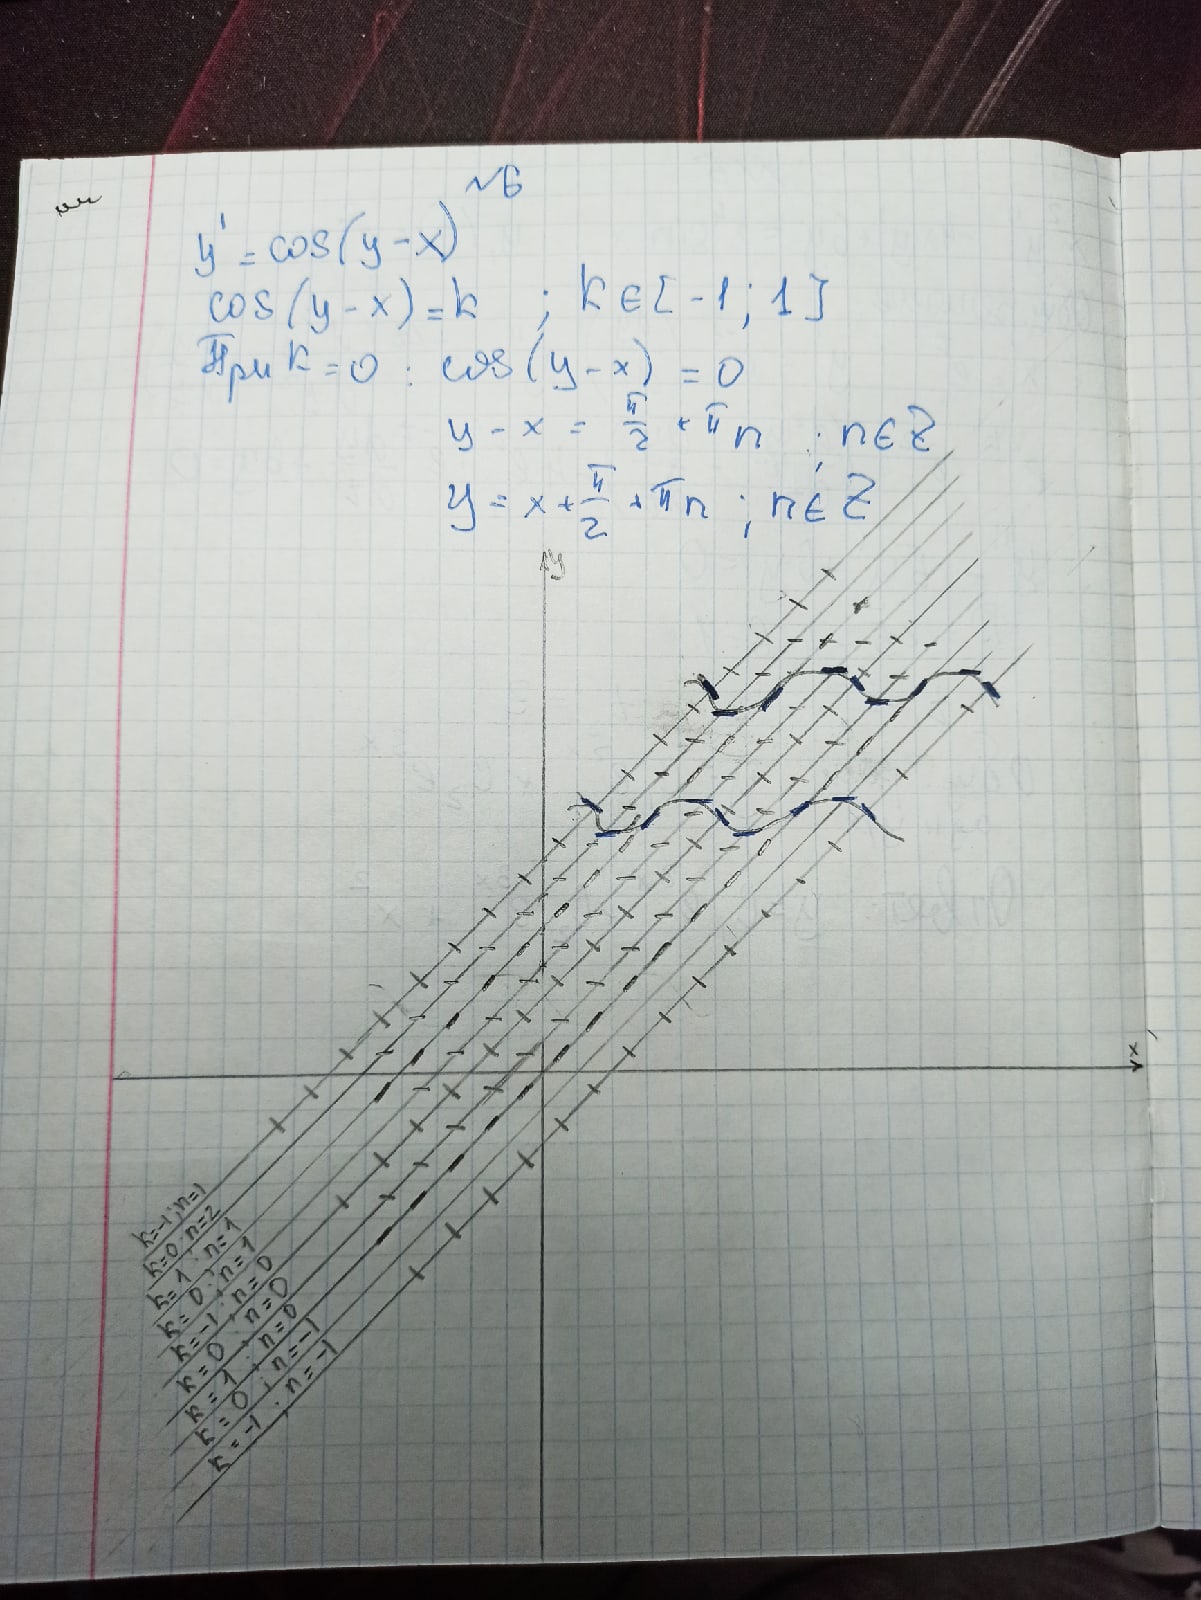 №6
y' = cos(y-x)
cos(y-x) = k ; k ∈ [-1; 1]
При k = 0 : cos(y-x) = 0
y - x = π/2 + πn ; n ∈ Z
y = x + π/2 + πn ; n ∈ Z
y
x
k=-1; n=1
k=0; n=2
k=1; n=1
k=0; n=1
k=-1; n=0
k=0; n=0
k=1; n=0
k=0; n=-1
k=-1; n=-1